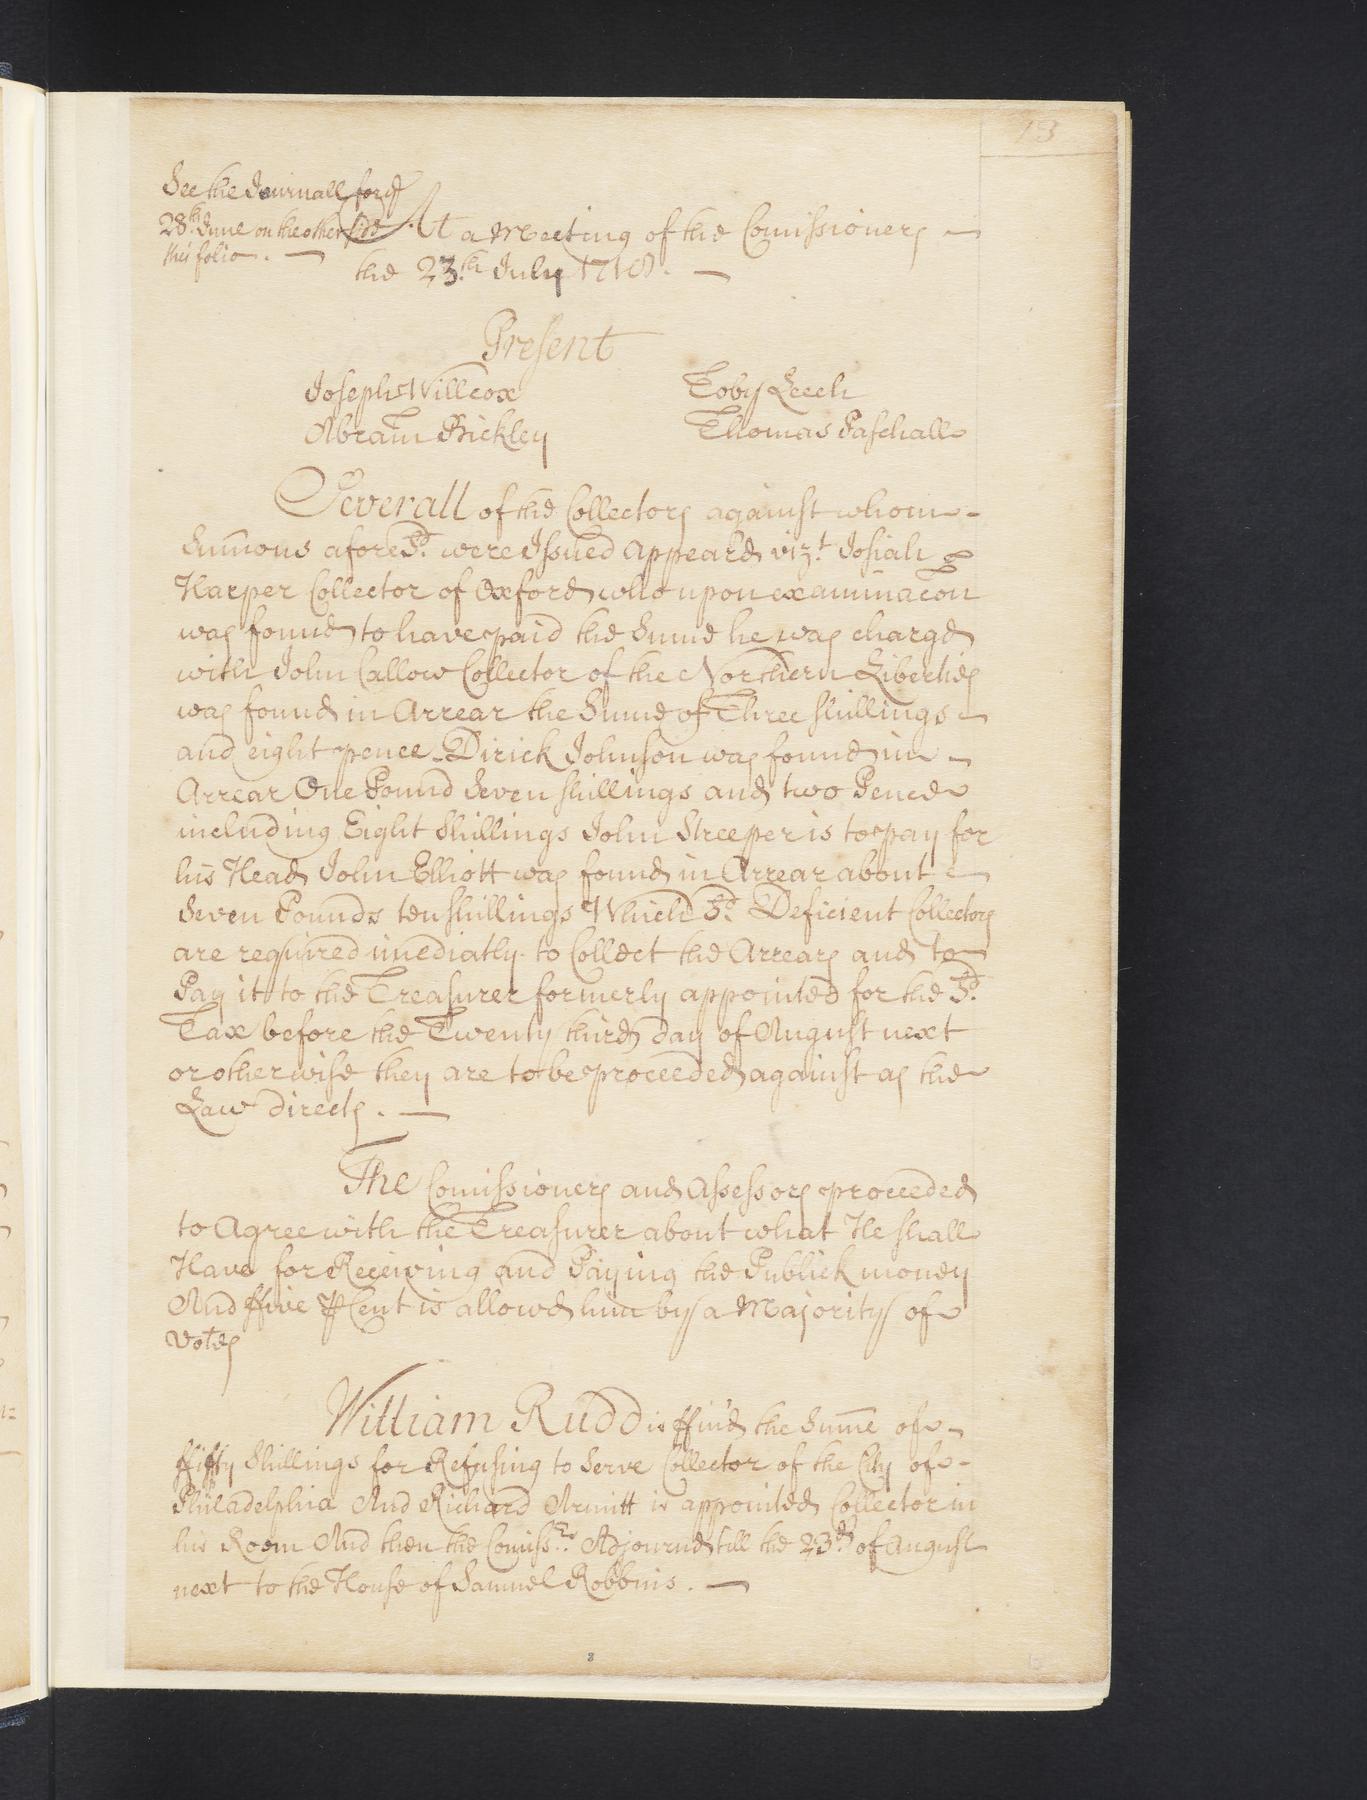 13
See the Journall for ye
28th June on the other side
this folio. —
At a Meeting of the Comissioners —
the 23th July 1718. —
Present
Joseph Willcox Toby Leech
Abram Bickley Thomas Paschall
Severall of the Collectors against whom -
Sumons afore Sd. were Issued appeard vizt. Josiah
Harper Collector of Oxford who upon examinacon
was found to have paid the Sume he was chargd
with John Callow Collector of the Northern Liberties
was found in Arrear the Sume of Three shillings
and eight pence - Dirick Johnson was found in -
Arrear One Pound Seven shillings and two Pence
including Eight Shillings John Streeper is to pay for
his Head John Elliott was found in Arrear about
Seven Pounds ten shillings Which Sd. Deficient Collectors
are required imediatly to Collect the Arrears and to
Pay it to the Treasurer formerly appointed for the Sd.
Tax before the Twenty third day of August next
or otherwise they are to be proceeded against as the
Law directs. —
The Comissioners and Assessors proceeded
to Agree with the Treasurer about what He shall
Have for Receiving and Paying the Publick money
And ffive ⅌ Cent is allowd him by a Majority of
Votes
William Rudd is ffin'd the Sume of -
ffifty Shillings for Refusing to Serve Collector of the City of -
Philadelphia And Richard Armitt is appointed Collector in
his Room And then the Comissrs. Adjournd till the 23d of August
next to the House of Samuel Robbins. —
8